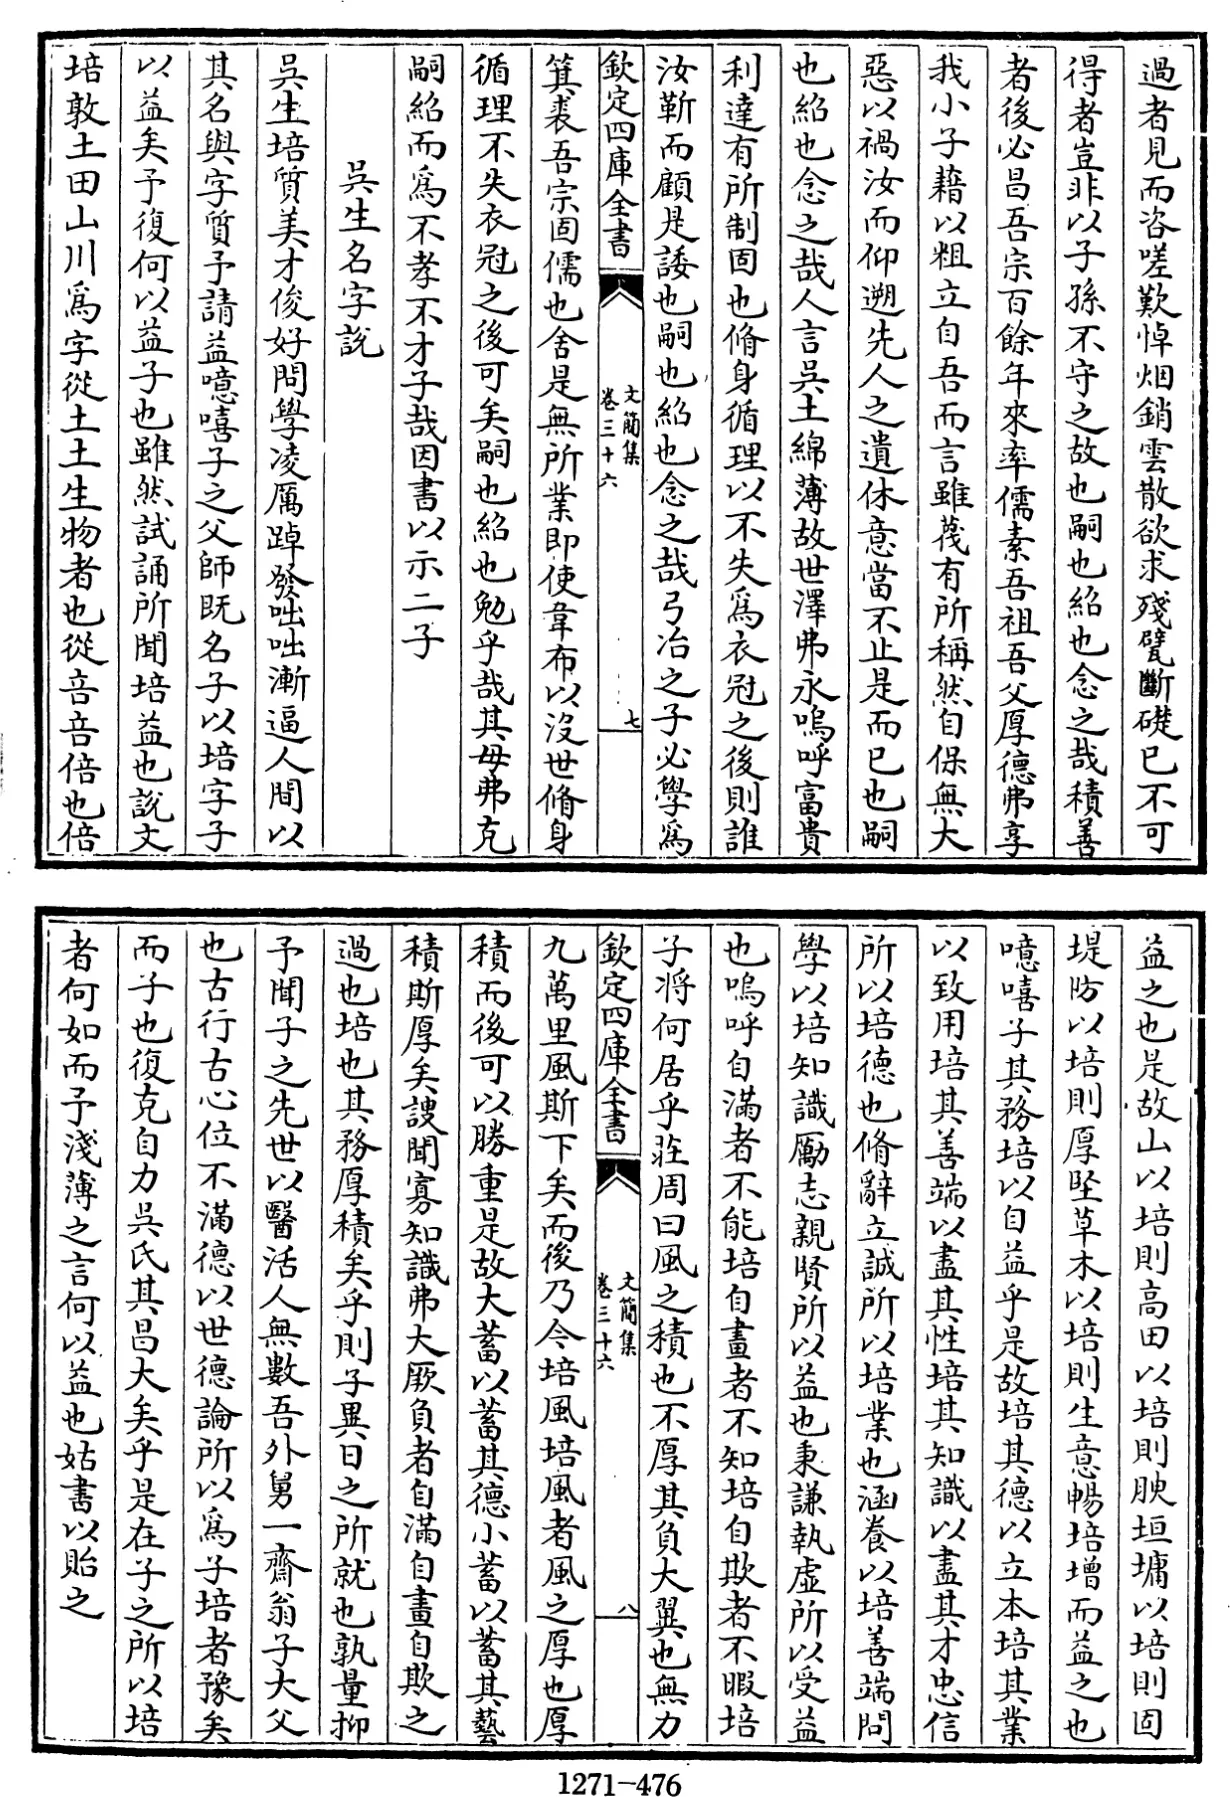 過者見而咨嗟歎悼烟銷雲散欲求殘甓斷礎已不可
得者豈非以子孫不守之故也嗣也紹也念之哉積善
者後必昌吾宗百餘年來率儒素吾祖吾父厚德弗享
我小子藉以粗立自吾而言雖蔑有所稱然自保無大
惡以禍汝而仰遡先人之遺休意當不止是而已也嗣
也紹也念之哉人言吳土綿薄故世澤弗永嗚呼富貴
利達有所制固也脩身循理以不失爲衣冠之後則誰
汝靳而顧是諉也嗣也紹也念之哉弓冶之子必學爲
欽定四庫全書
文簡集
卷三十六
七
箕裘吾宗固儒也舍是無所業即使韋布以沒世脩身
循理不失衣冠之後可矣嗣也紹也勉乎哉其毋弗克
嗣紹而爲不孝不才子哉因書以示二子
吳生名字說
吳生培質美才俊好問學凌厲踔發咄咄漸逼人間以
其名與字質予請益噫嘻子之父師既名子以培字子
以益矣予復何以益子也雖然試誦所聞培益也說文
培敦土田山川爲字從土土生物者也從咅咅倍也倍
益之也是故山以培則高田以培則腴垣墉以培則固
堤防以培則厚堅草木以培則生意暢培增而益之也
噫嘻子其務培以自益乎是故培其德以立本培其業
以致用培其善端以盡其性培其知識以盡其才忠信
所以培德也脩辭立誠所以培業也涵養以培善端問
學以培知識勵志親賢所以益也秉謙執虛所以受益
也嗚呼自滿者不能培自畫者不知培自欺者不暇培
子將何居乎莊周曰風之積也不厚其負大翼也無力
欽定四庫全書
文簡集
卷三十六
八
九萬里風斯下矣而後乃今培風培風者風之厚也厚
積而後可以勝重是故大蓄以蓄其德小蓄以蓄其藝
積斯厚矣謏聞寡知識弗大厥負者自滿自畫自欺之
過也培也其務厚積矣乎則子異日之所就也孰量抑
予聞子之先世以醫活人無數吾外舅一齋翁子大父
也古行古心位不滿德以世德論所以爲子培者豫矣
而子也復克自力吳氏其昌大矣乎是在子之所以培
者何如而予淺薄之言何以益也姑書以貽之
1271-476